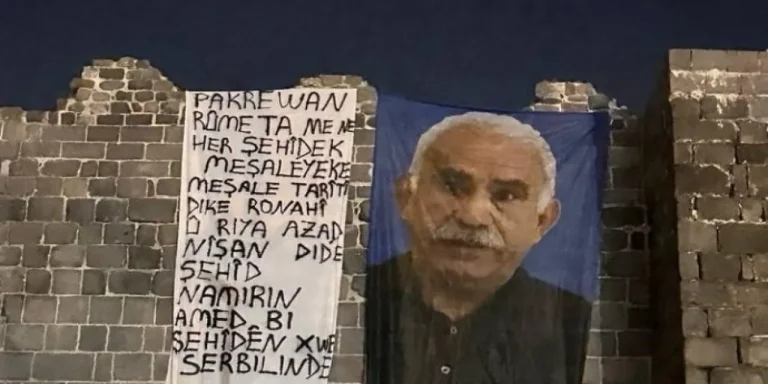 PAKREWAN
RÛMETA ME NE
HER ŞEHIDEK
MEŞALEYEKE
MEŞALE TARÎTÎ
DIKE RONAHÎ
Û RIYA AZAD
NÎŞAN DIDE
ŞEHÎD
NAMIRIN
AMED BI
ŞEHÎDÊN XWE
SERBILINDE